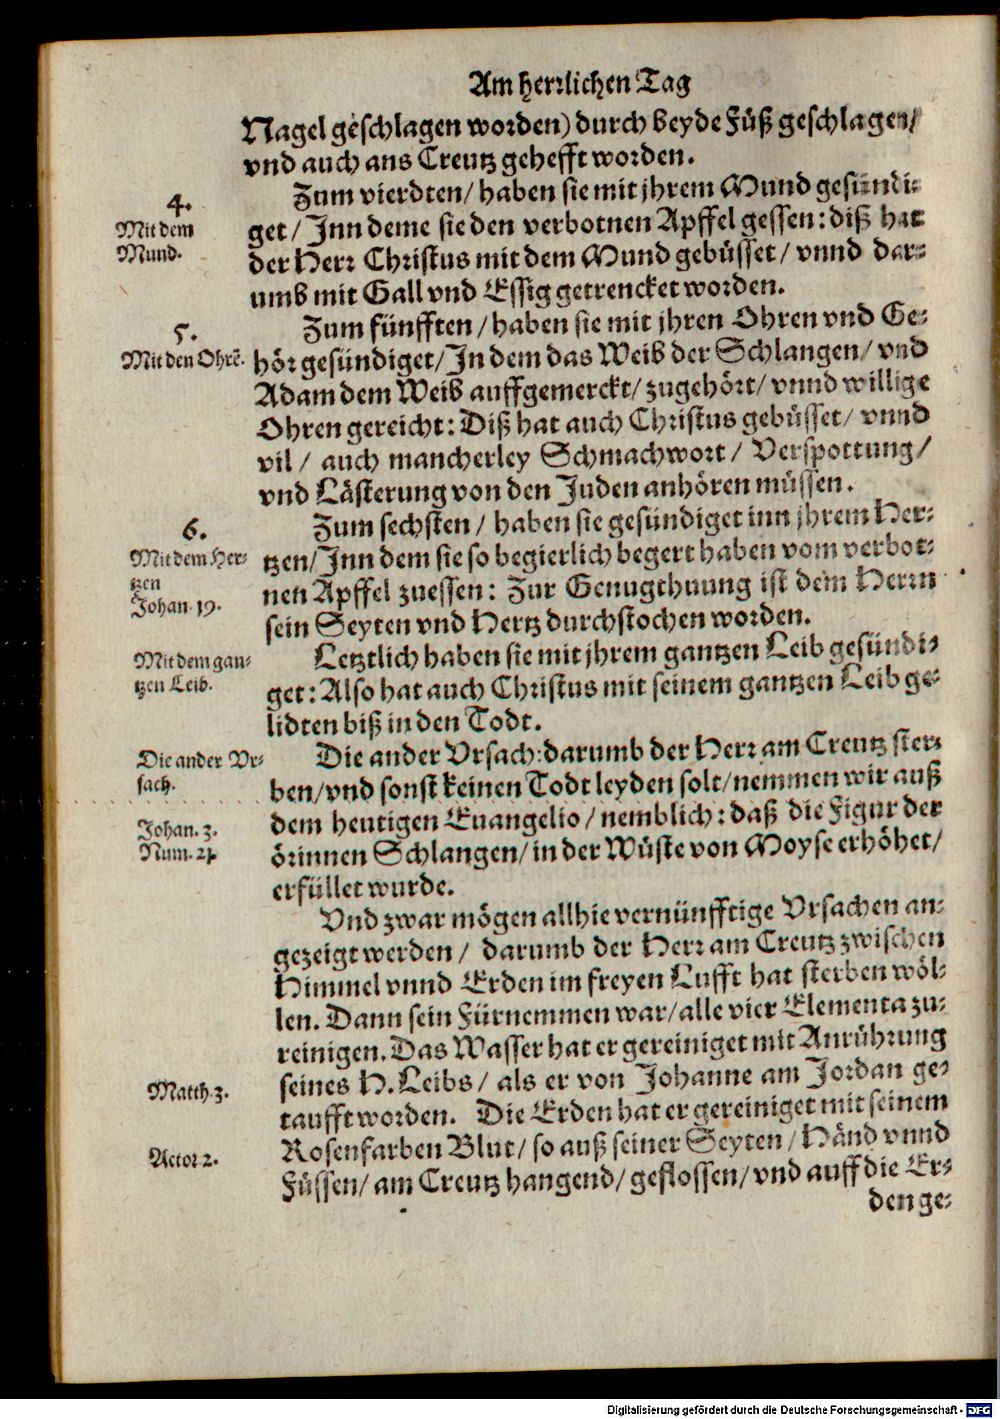 Am herrlichen Tag
Nagel geschlagen worden) durch beyde Füß geschlagen/
vnd auch ans Creutz gehefft worden.
Zum vierdten/ haben sie mit jhrem Mund gesündi-
4.
Mit dem
Mund.
get/ Inn deme sie den verbotnen Apffel gessen: diß hat
der Herr Christus mit dem Mund gebüsset/ vnnd dar-
umb mit Gall vnd Essig getrencket worden.
Zum fünfften/ haben sie mit jhren Ohren vnd Ge-
5.
Mit den Ohrẽ.
hör gesündiget/ In dem das Weib der Schlangen/ vnd
Adam dem Weib auffgemerckt/ zugehört/ vnnd willige
Ohren gereicht: Diß hat auch Christus gebüsset/ vnnd
vil/ auch mancherley Schmachwort/ Verspottung/
vnd Lästerung von den Juden anhören müssen.
Zum sechsten/ haben sie gesündiget inn jhrem Her-
6.
Mit dem Her-
tzen
Johan. 19.
tzen/ Inn dem sie so begierlich begert haben vom verbot-
nen Apffel zuessen: Zur Genugthuung ist dem Herrn
sein Seyten vnd Hertz durchstochen worden.
Letztlich haben sie mit jhrem gantzen Leib gesündi-
Mit dem gan-
tzen Leib.
get: Also hat auch Christus mit seinem gantzen Leib ge-
lidten biß in den Todt.
Die ander Vrsach: darumb der Herr am Creutz ster-
Die ander Vr-
sach.
ben/ vnd sonst keinen Todt leyden solt/ nemmen wir auß
dem heutigen Euangelio/ nemblich: daß die Figur der
Johan. 3.
Num. 21.
örinnen Schlangen/ in der Wüste von Moyse erhöhet/
erfüllet wurde.
Vnd zwar mögen allhie vernünfftige Vrsachen an-
gezeigt werden/ darumb der Herr am Creutz zwischen
Himmel vnnd Erden im freyen Lufft hat sterben wöl-
len. Dann sein Fürnemmen war/ alle vier Elementa zu-
reinigen. Das Wasser hat er gereiniget mit Anrührung
Matth. 3.
seines H. Leibs/ als er von Johanne am Jordan ge-
taufft worden. Die Erden hat er gereiniget mit seinem
Actor 2.
Rosenfarben Blut/ so auß seiner Seyten/ Händ vnnd
Füssen/ am Creutz hangend/ geflossen/ vnd auff die Er-
den ge-
Digitalisierung gefördert durch die Deutsche Forschungsgemeinschaft - DFG